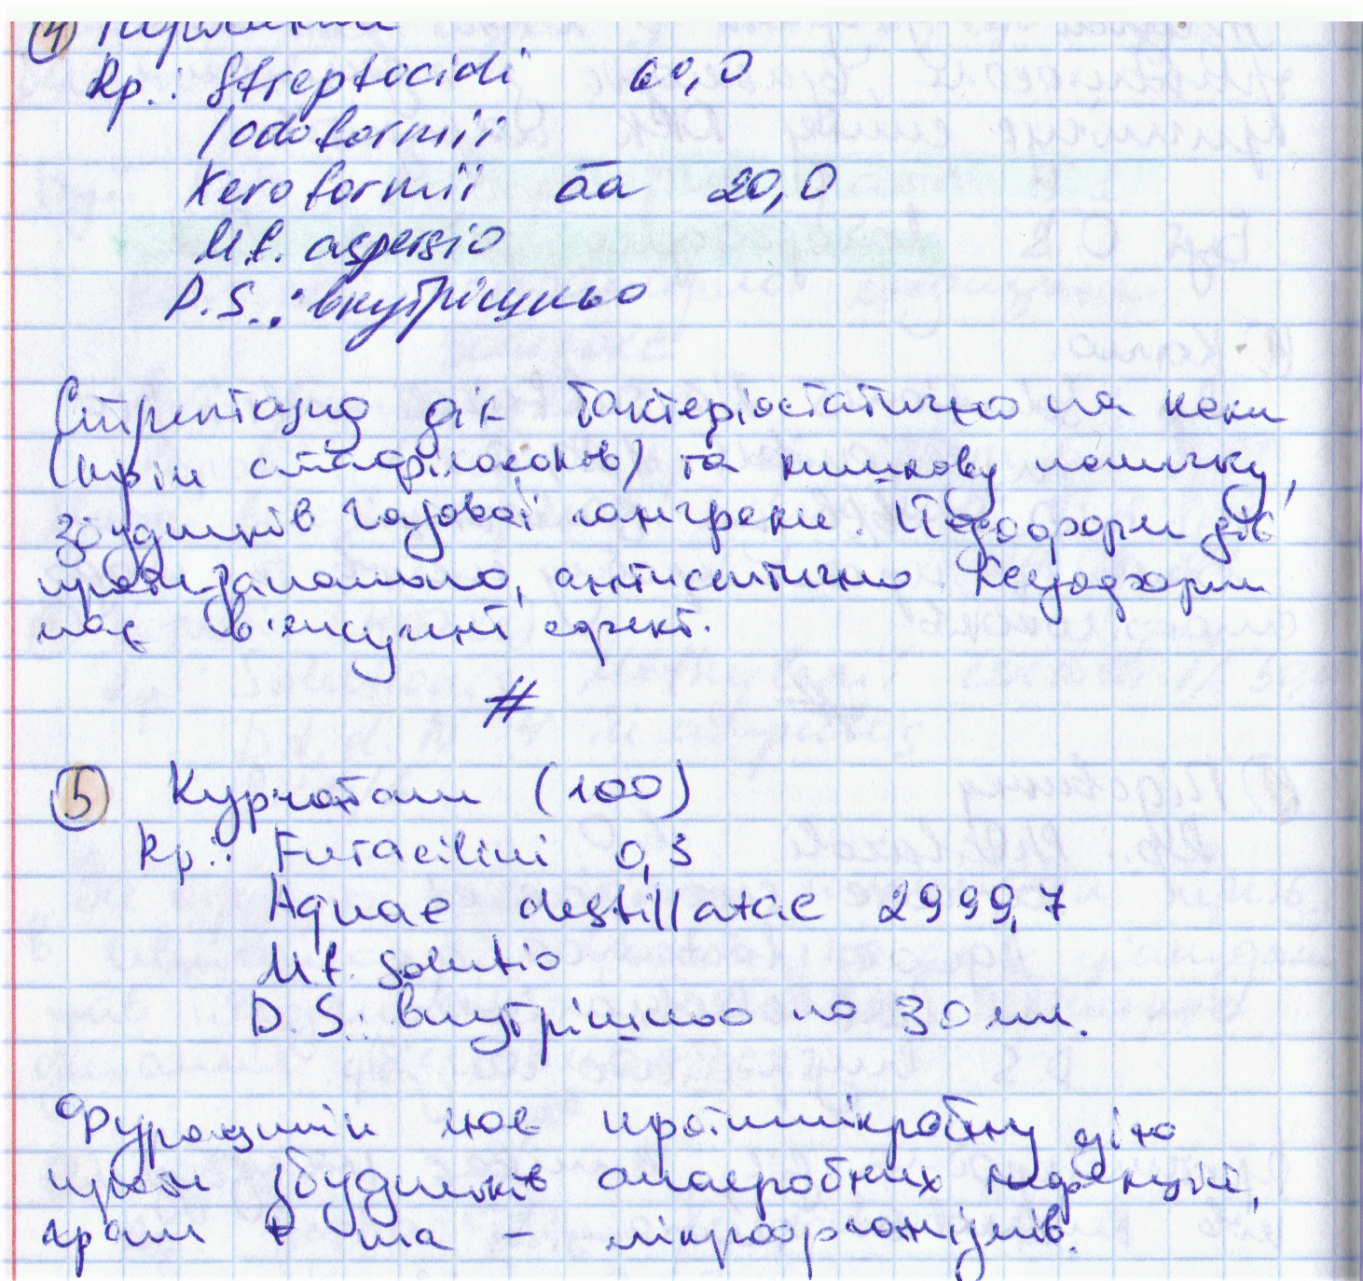 ④
Rp.: Streptocidi 60,0
Iodoformii
Xeroformii āā 20,0
M.f. aspersio
D.S.: внутрішньо
Стрептоцид діє бактеріостатично на коки
(крім стафілококів) та кишкову паличку,
збудників газової гангрени. Йодоформ діє
протизапально, антисептично Ксероформ
має в'яжучий ефект.
#
⑤ Курчатам (100)
Rp.: Furacilini 0,3
Aquae destillatae 2999,7
M.f. solutio
D.S.: внутрішньо по 30 мл.
Фурацилін має протимікробну дію
проти збудників анаеробних інфекцій,
грам + та – мікроорганізмів.